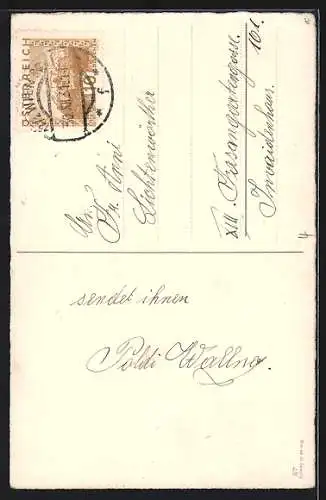 ÖSTERREICH
10
WIEN
An
Fr. Anni
Lichtenwörther
XIII. Fasangartengasse
101.
Invalidenhaus.
sendet ihnen
Poldi Wallno.